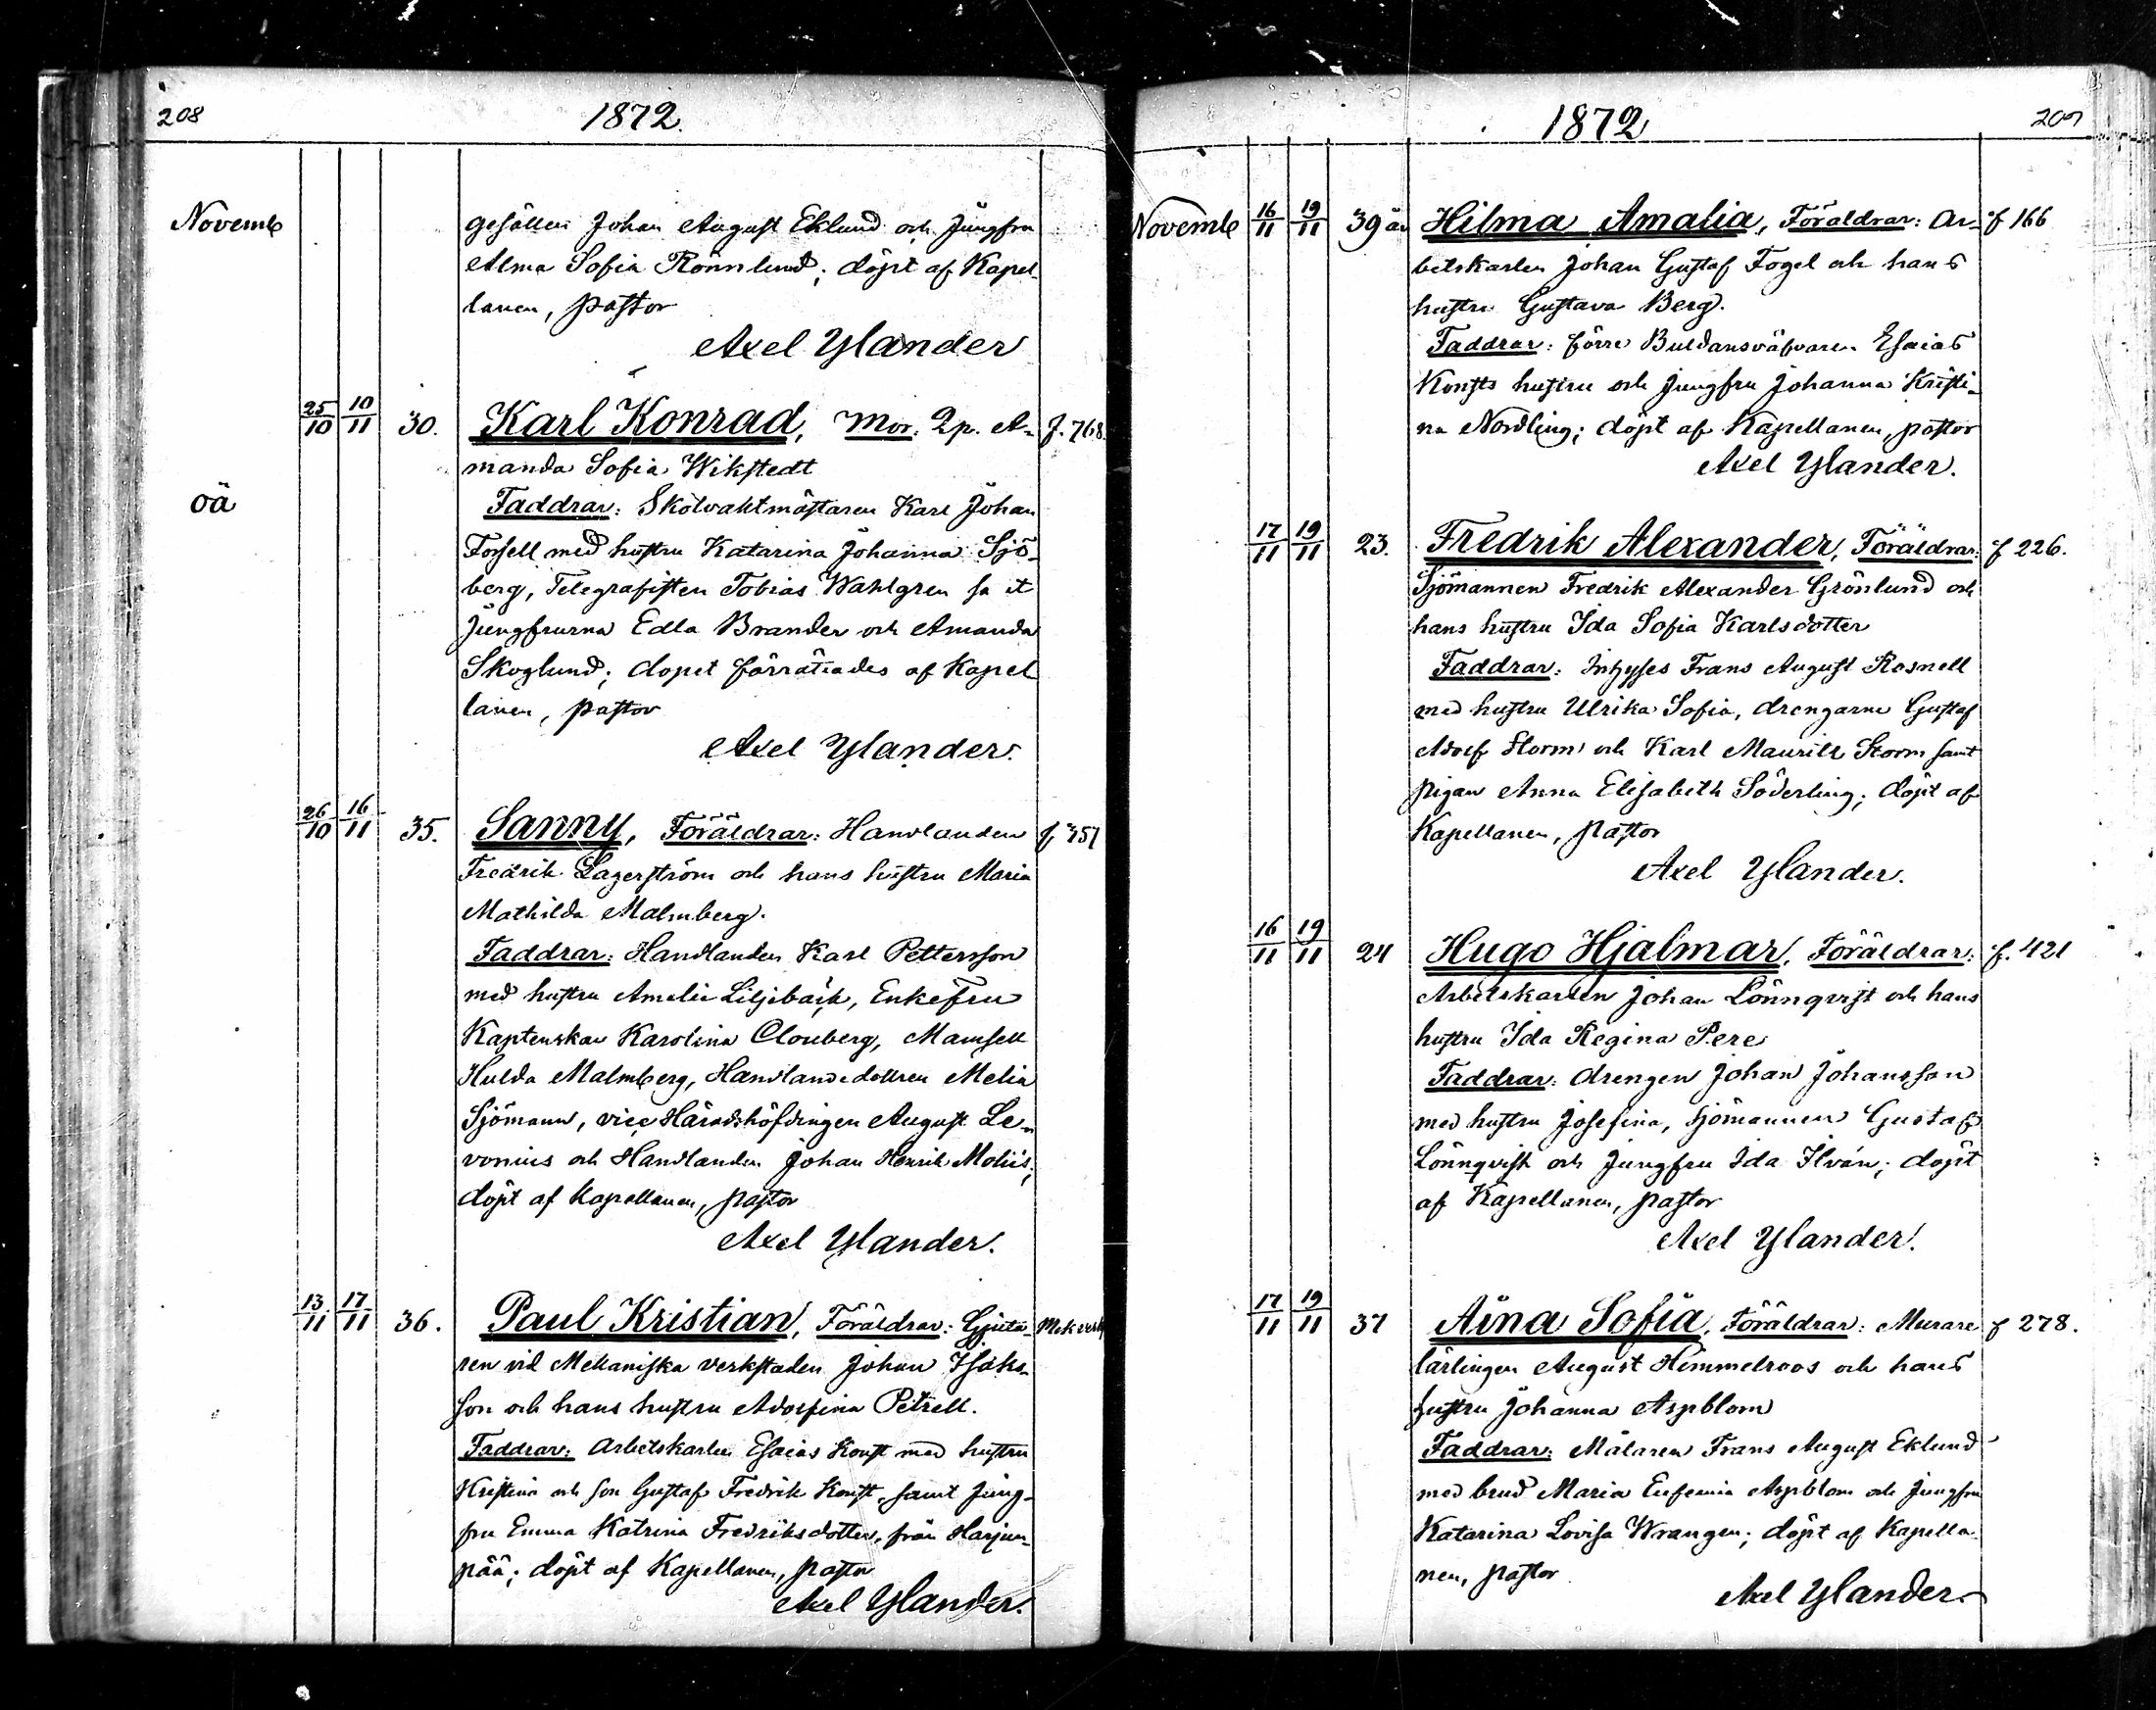 208
1872.
Novemb
gesällen Johan August Eklund och Jungfru
Alma Sofia Rönnlund; döpt af Kapel-
lanen, pastor
Axel Ylander
25/10 10/11 30. Karl Konrad, Mor: Qp. A- f. 768.
manda Sofia Wikstedt
oä
Faddrar: Skolvaktmästaren Karl Johan
Forsell med hustru Katarina Johanna Sjö-
berg, Telegrafisten Tobias Wahlgren sa t
Jungfrurna Edla Brander och Amanda
Skoglund; dopet förrättades af Kapel
lanen, pastor
Axel Ylander.
26/10 16/11 35. Sanny, Föräldrar: Handlanden f 351
Fredrik Lagerström och hans hustru Maria
Mathilda Malmberg.
Faddrar: Handlanden Karl Pettersson
med hustru Amalia Liljebäck, Enkefru
Kaptenskan Karolina Clouberg, Mamsell
Hulda Malmberg, Handlandedottren Melia
Sjömann, vice Häradshöfdingen August Le-
vonius och Handlanden Johan Henrik Moliis;
döpt af Kapellanen, pastor
Axel Ylander.
13/11 17/11 36. Paul Kristian, Föräldrar: Gjuta- Mek verk
ren vid Mekaniska verkstaden Johan Isaks-
son och hans hustru Adolfina Petrell.
Faddrar: Arbetskarlen Esaias Konst med hustru
Kristina och son Gustaf Fredrik Konst, samt Jung-
fru Emma Katrina Fredriksdotter, från Harjun-
pää; döpt af Kapellanen, pastor
Axel Ylander.
1872
209
Novemb 16/11 19/11 39 Hilma Amalia, Föräldrar: Ar- f 166
betskarlen Johan Gustaf Fogel och hans
hustru Gustava Berg.
Faddrar: förre Buldansväfvaren Esaias
Konsts hustru och Jungfru Johanna Kristi-
na Nordling; döpt af Kapellanen, pastor
Axel Ylander.
17/11 19/11 23. Fredrik Alexander, Föräldrar: f 226.
Sjömannen Fredrik Alexander Grönlund och
hans hustru Ida Sofia Karlsdotter
Faddrar: Inhyses Frans August Rosnell
med hustru Ulrika Sofia, drengarne Gustaf
Adolf Storm och Karl Maurits Storm samt
pigan Anna Elisabeth Söderling; döpt af
Kapellanen, pastor
Axel Ylander.
16/11 19/11 24 Hugo Hjalmar, Föräldrar: f. 421
Arbetskarlen Johan Lönnqvist och hans
hustru Ida Regina Pere
Faddrar: drengen Johan Johansson
med hustru Josefina, Sjömannen Gustaf
Lönnqvist och Jungfru Ida Ilván; döpt
af Kapellanen, pastor
Axel Ylander.
17/11 19/11 37 Aina Sofia, Föräldrar: Murare f 278.
lärlingen August Himmelroos och hans
hustru Johanna Aspblom
Faddrar: Målaren Frans August Eklund
med brud Maria Eufemia Aspblom och Jungfru
Katarina Lovisa Wrangen; döpt af Kapella-
nen, pastor
Axel Ylander.